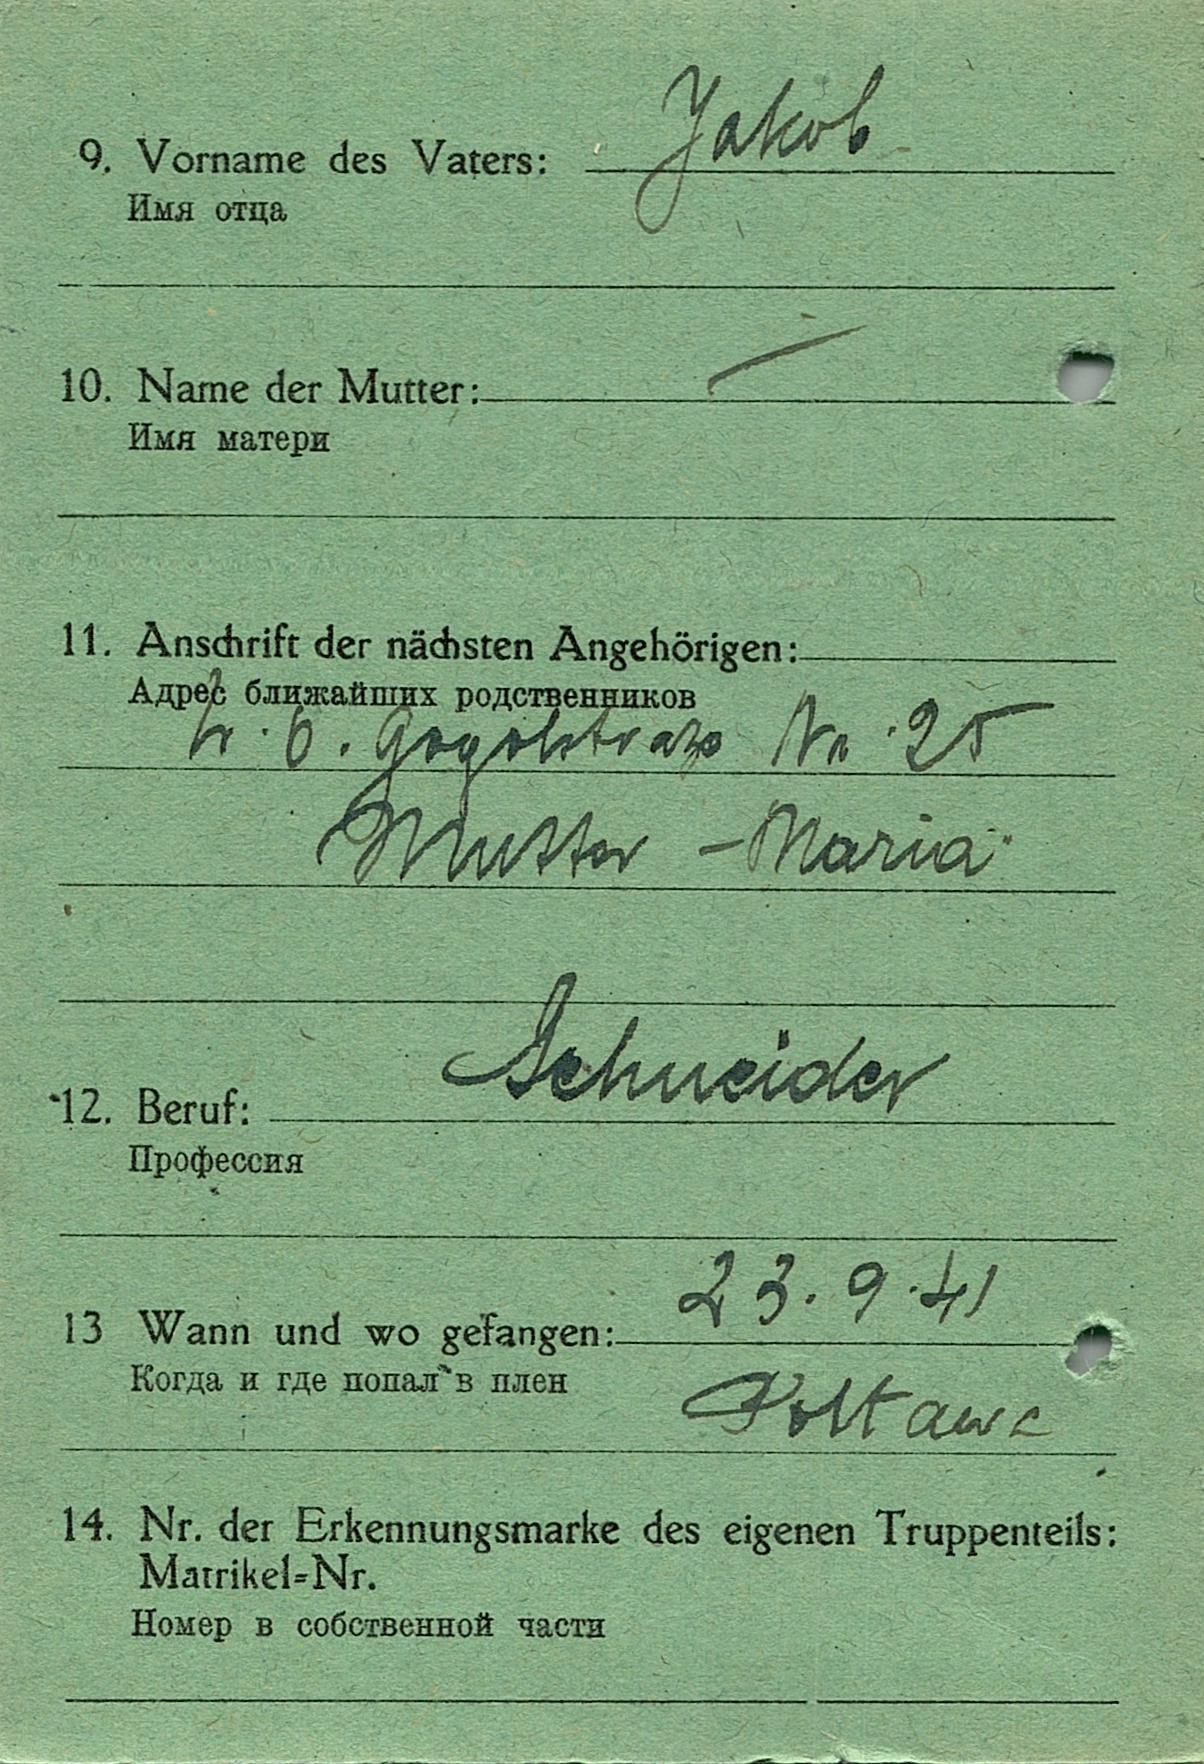 9. Vorname des Vaters: Jakob
Имя отца
10. Name der Mutter: —
Имя матери
11. Anschrift der nächsten Angehörigen:
Адрес ближайших родственников
Gogolstraße Nr. 25
Mutter - Maria
12. Beruf: Schneider
Профессия
13 Wann und wo gefangen: 23.9.41
Когда и где попал в плен
Poltawa
14. Nr. der Erkennungsmarke des eigenen Truppenteils:
Matrikel=Nr.
Номер в собственной части